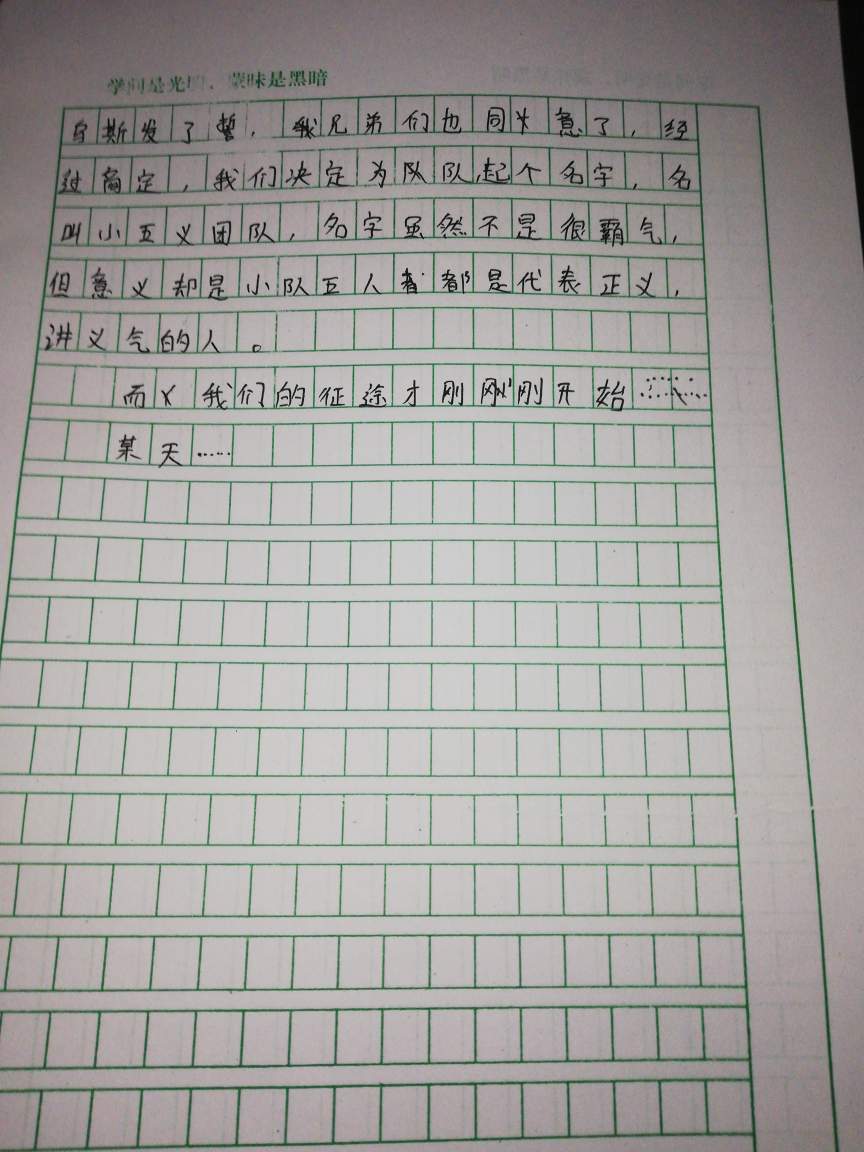 学问是光明，蒙昧是黑暗
乌斯发了誓，我兄弟们也同意了，经
过商定，我们决定为队队起个名字，名
叫小五义团队，名字虽然不是很霸气，
但意义却是小队五人都是代表正义，
讲义气的人。
而我们的征途才刚刚刚开始……
某天……